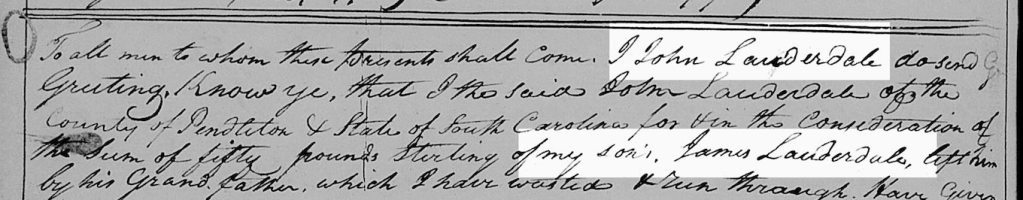 To all men to whom these presents shall Come. I John Lauderdale do send
Greeting, Know ye, that I the said John Lauderdale of the
County of Pendleton & State of South Carolina for & in the Consideration of
the Sum of fifty pounds Sterling of my son's, James Lauderdale, left him
by his Grand father, which I have wasted & run through. Have Given